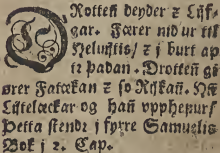 DRotteñ deyder ꛎ Lijf-
gar. Færer nid ur til
Heluijtis / ꛎ j burt ap-
tr þadan. Drotteñ gi-
ører Fatækan ꛎ so Rijkañ. Hñ
Lijtelæckar og hañ vpphefur /
Þetta stendr j fyrre Samuelis
Bok j 2. Cap.